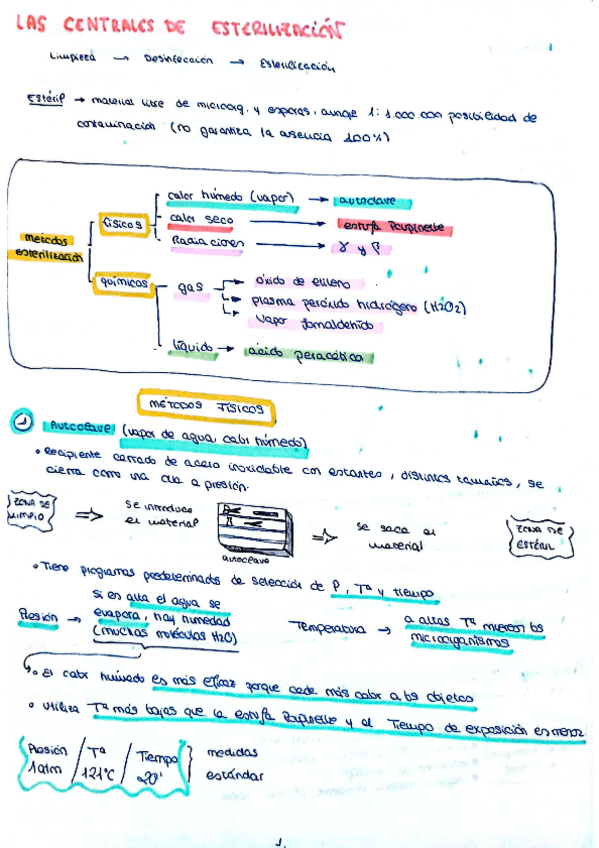 LAS CENTRALES DE ESTERILIZACIÓN
Limpieza → Desinfección → Esterilización
Estéril → material libre de microorg. y esporas, aunqe 1: 1.000.000 posibilidad de
contaminación (no garantiza la ausencia 100%)
métodos esterilización
físicos
calor húmedo (vapor) → autoclave
calor seco → estufa Poupinelle
Radiaciones → γ y β
químicos
gas → óxido de etileno
→ plasma peróxido hidrógeno (H2O2)
→ vapor formaldehido
líquido → ácido peracético
MÉTODOS FÍSICOS
1 Autoclave (vapor de agua, calor húmedo)
• Recipiente cerrado de acero inoxidable con estantes, distintos tamaños, se
cierra como una olla a presión.
ZONA DE LIMPIO ⇒ se introduce el material
autoclave
⇒ se saca el material
ZONA DE ESTÉRIL
• Tiene programas predeterminados de selección de P, Tª y tiempo
Presión → si es alta el agua se
evapora, hay humedad
(muchas moléculas H2O)
Temperatura → a altas Tª mueren los
microorganismos
• El calor húmedo es más eficaz porque cede más calor a los objetos
• Utiliza Tª más bajas que la estufa Poupinelle y el Tiempo de exposición es menor.
Presión 1 atm / Tª 121ºC / Tiempo 20' } medidas estándar
1.